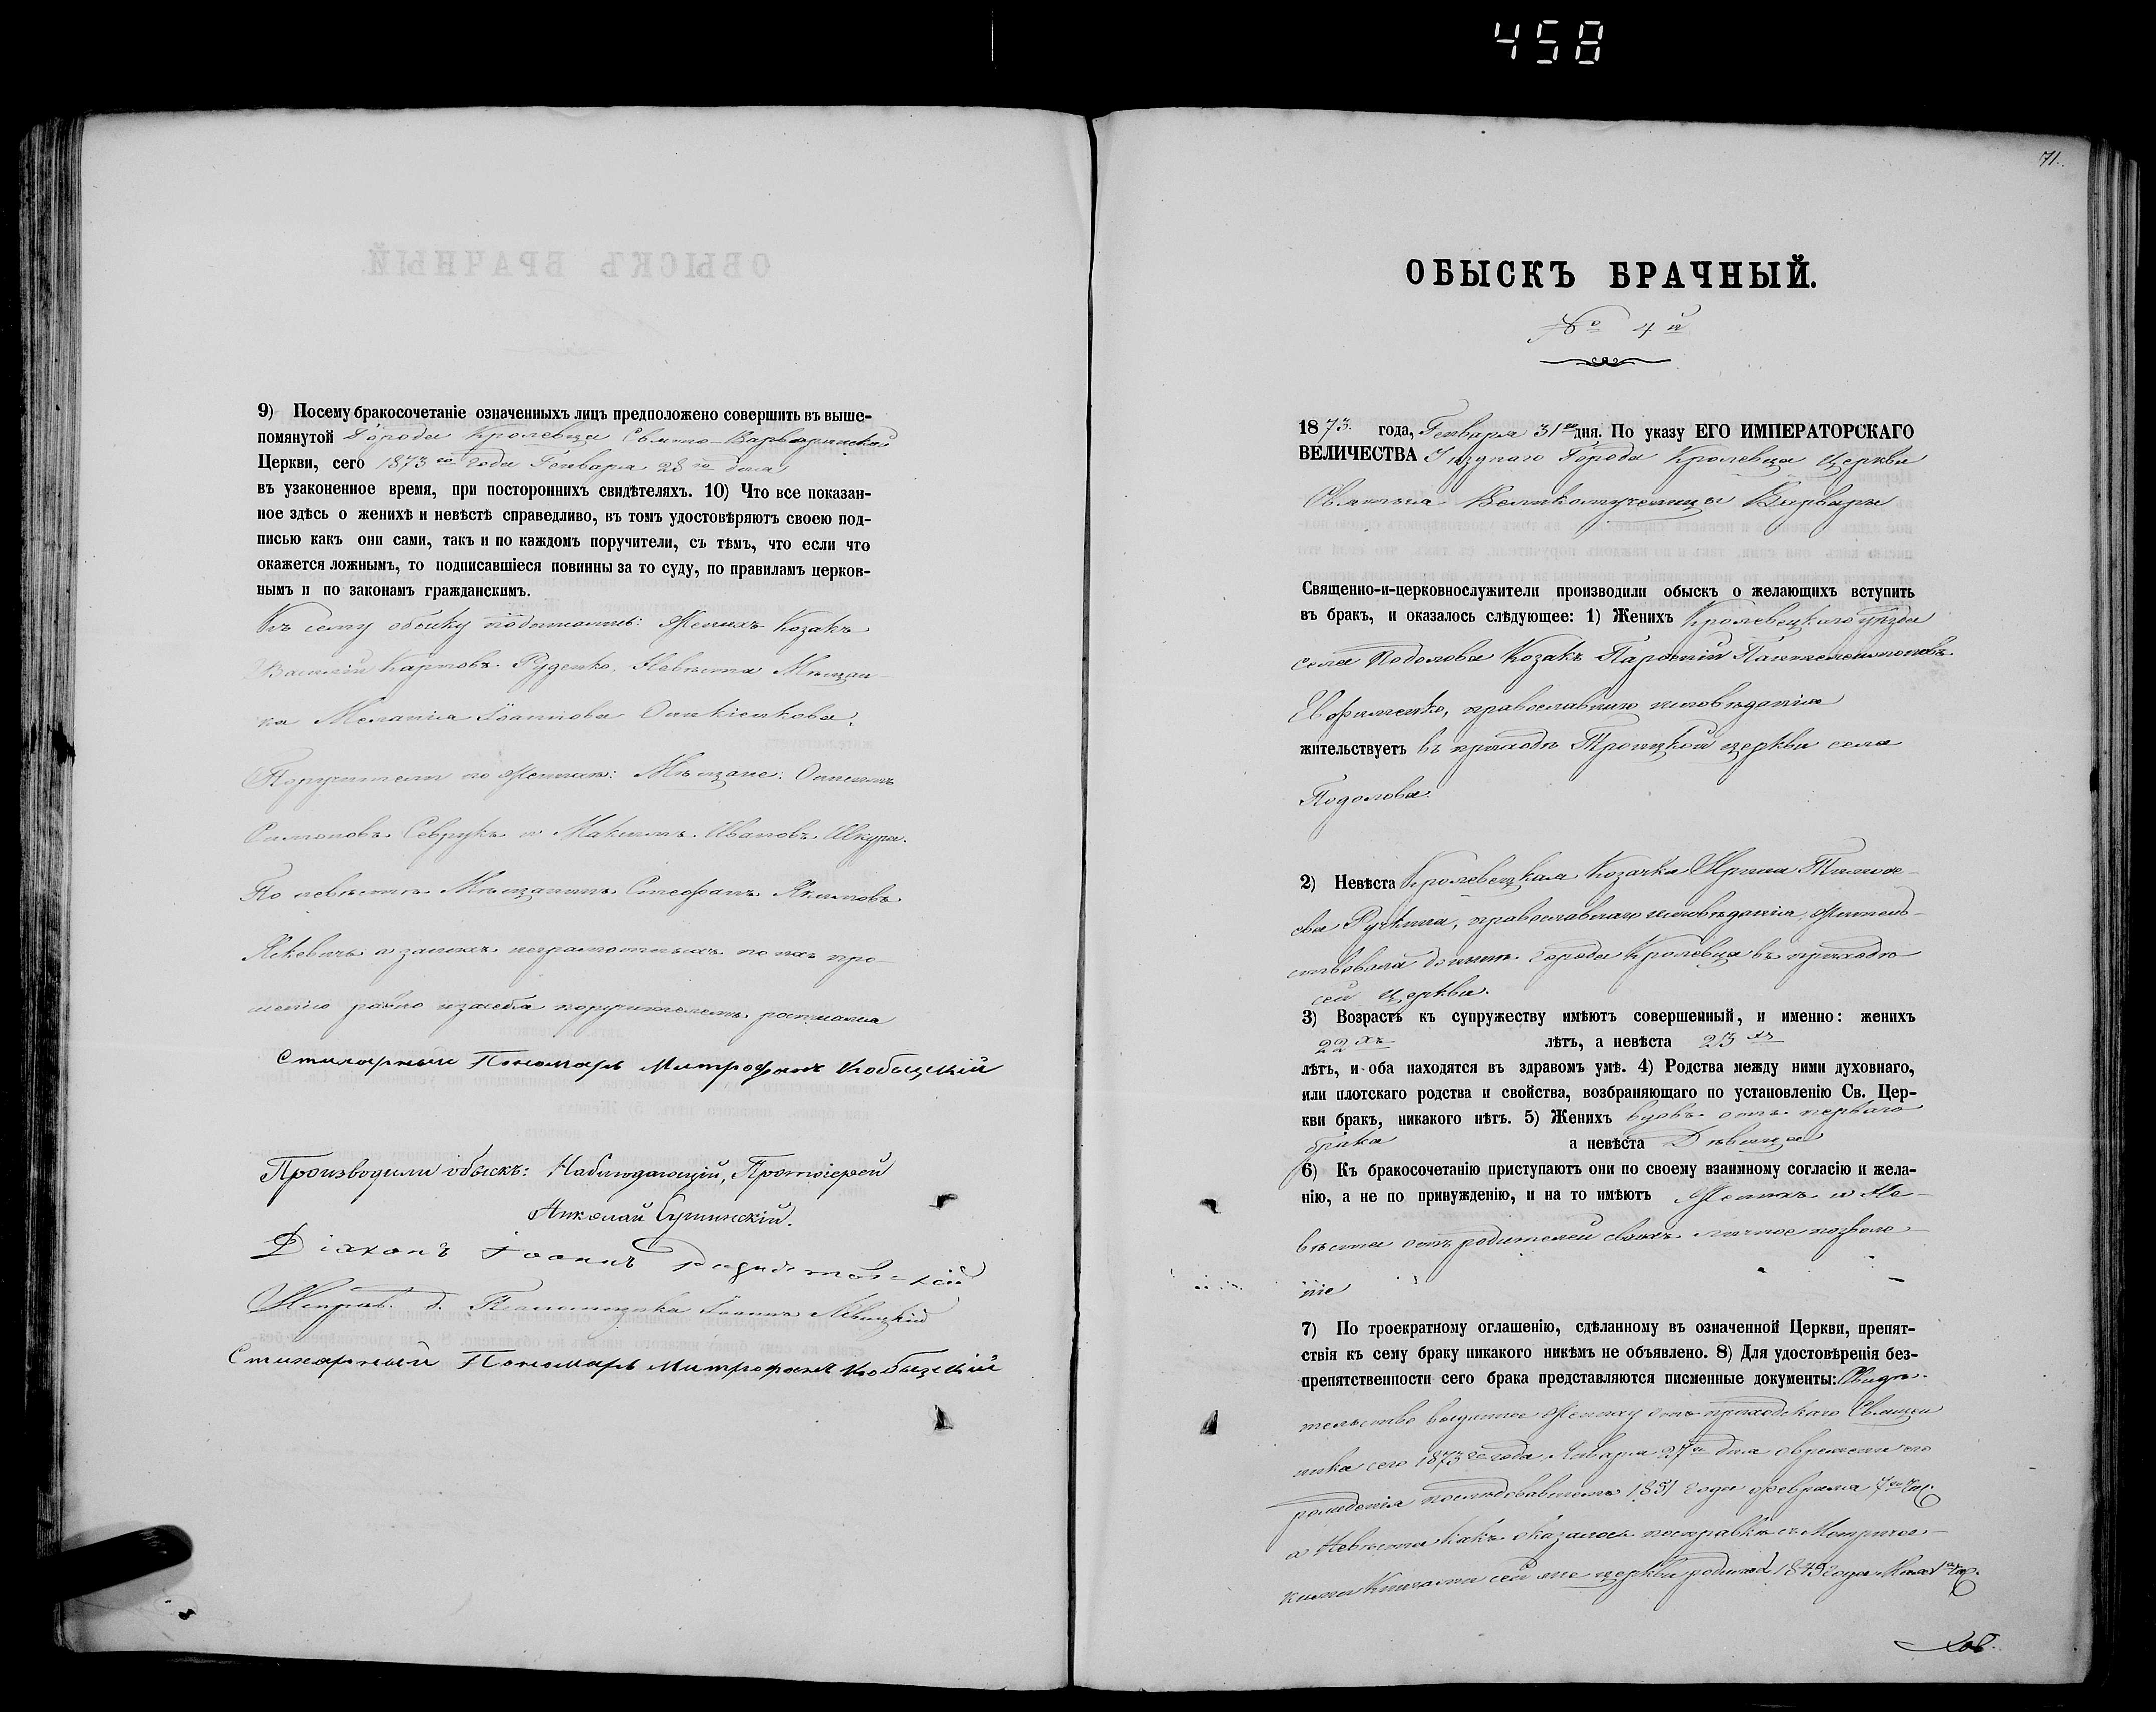 458
9) Посему бракосочетаніе означенныхъ лицъ предположено совершить въ выше-
помянутой Города Кролевца Свято-Варваринской
Церкви, сего 1873го года Генваря 28го дня
въ узаконенное время, при постороннихъ свидѣтеляхъ. 10) Что все показан-
ное здѣсь о женихѣ и невѣстѣ справедливо, въ томъ удостовѣряютъ своею под-
писью какъ они сами, такъ и по каждомъ поручители, съ тѣмъ, что если что
окажется ложнымъ, то подписавшіеся повинны за то суду, по правиламъ церков-
нымъ и по законамъ гражданскимъ.
Къ сему обыску подписались: Женихъ Козакъ
Василій Карповъ Руденко, Невѣста Мѣщан-
ка Меланія Іоаннова
Поручители по женихѣ: Мѣщане:
Севрукъ и Максимъ Ивановъ Шкура.
По невѣстѣ Мѣщанинъ Стефанъ Якимовъ
а за нихъ неграмотныхъ по ихъ про-
шенію равно и за себя поручителемъ росписался
Стихарный Пономарь Митрофанъ Кобыцкій
Производили обыскъ: Наблюдающій, Протоіерей
Николай
Діаконъ Іоаннъ
Исправ. д. Псаломщика Іоаннъ Левицкій
Стихарный Пономарь Митрофанъ Кобыцкій
71.
ОБЫСКЪ БРАЧНЫЙ.
№ 4й
1873. года, Генваря 31го дня. По указу ЕГО ИМПЕРАТОРСКАГО
ВЕЛИЧЕСТВА Уѣзднаго Города Кролевца Церкви
Святыя Великомученицы Варвары
Священно-и-церковнослужители производили обыскъ о желающихъ вступить
въ бракъ, и оказалось слѣдующее: 1) Женихъ Кролевецкаго уѣзда
села Подолова Козакъ Парфеній Пантелеимоновъ
Евфименко, православнаго исповѣданія
жительствуетъ въ приходѣ Троицкой церкви села
Подолова.
2) Невѣста Кролевецкая Козачка Ирина Тимофе-
ева Ручкина, православнаго исповѣданія, жительс-
ствовала донынѣ города Кролевца въ приходѣ
сей Церкви.
3) Возрастъ къ супружеству имѣютъ совершенный, и именно: женихъ
22хъ лѣтъ, а невѣста 23хъ
лѣтъ, и оба находятся въ здравомъ умѣ. 4) Родства между ними духовнаго,
или плотскаго родства и свойства, возбраняющаго по установленію Св. Цер-
кви бракъ, никакого нѣтъ. 5) Женихъ вдовъ отъ перваго
брака а невѣста Дѣвица
6) Къ бракосочетанію приступаютъ они по своему взаимному согласію и жела-
нію, а не по принужденію, и на то имѣютъ Женихъ и Не-
вѣста отъ родителей своихъ личное позволе-
ніе
7) По троекратному оглашенію, сдѣланному въ означенной Церкви, препят-
ствія къ сему браку никакого никѣмъ не объявлено. 8) Для удостовѣренія без-
препятственности сего брака представляются писменные документы: Свидѣ-
тельство выданное Жениху отъ приходскаго Священ
ника сего 1873го года Января 27го дня о времени его
рожденія послѣдовавшемъ 1851 года февраля 7го чис.
а Невѣста какъ оказалось по справкѣ съ Метричес-
кими Книгами сей же церкви родилась 1849 года Мая 1го чис.